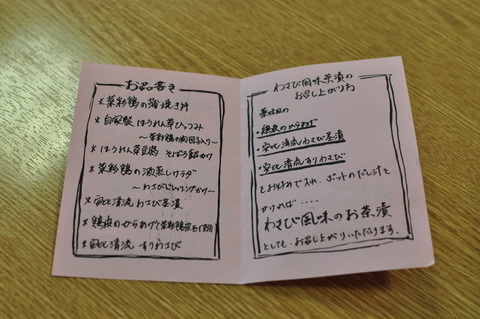 お品書き
＊菜彩鶏の梅焼き丼
＊自家製 ほうれん草ひっつみ
～菜彩鶏の肉団子入り～
＊ほうれん草豆腐 そばろ餡かけ
＊菜彩鶏の酒蒸しサラダ
～わさびドレッシングかけ～
＊安比清流わさび茶漬
＊鶏皮のからあげ 菜彩鶏皮を使用
＊安比清流 すりわさび
わさび風味茶漬の
お召し上がり方
薬味皿の
・鶏皮のからあげ
・安比清流わさび茶漬
・安比清流すりわさび
とお好みで入れ、ポットのだし汁を
かければ・・・・
わさび風味のお茶漬
としても、お召し上がりいただけます。